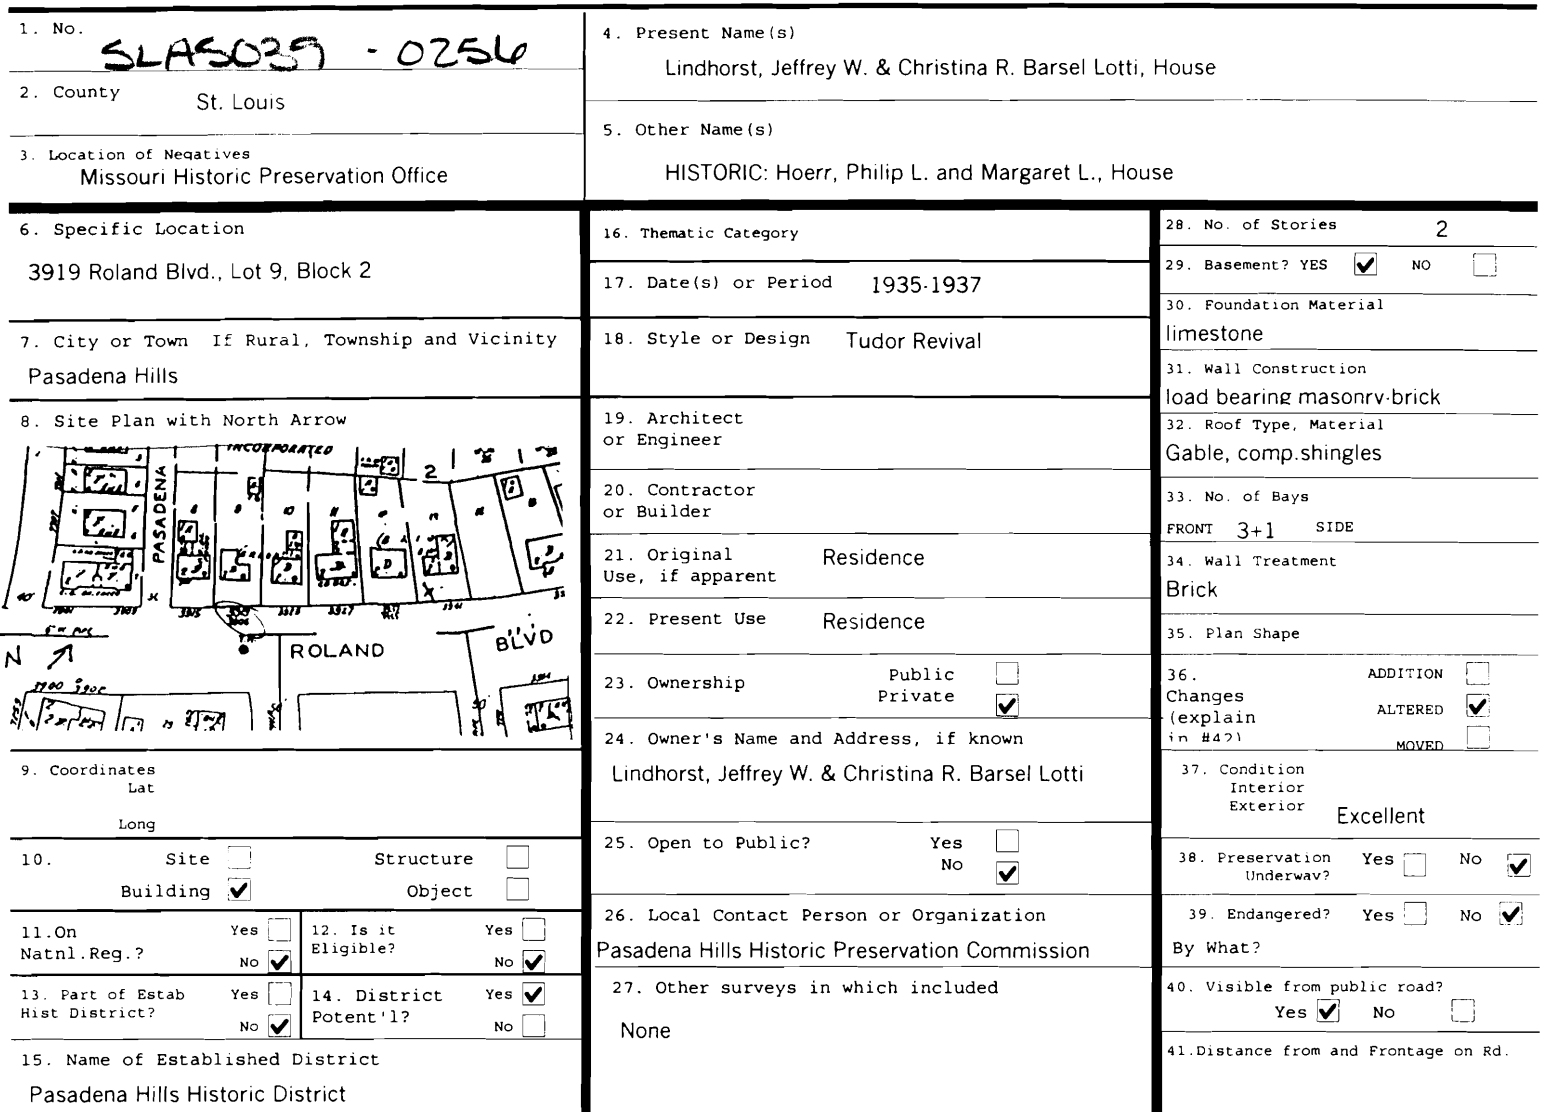 1. No.
SLAS039 - 0256
2. County St. Louis
3. Location of Negatives
Missouri Historic Preservation Office
4. Present Name(s)
Lindhorst, Jeffrey W. & Christina R. Barsel Lotti, House
5. Other Name(s)
HISTORIC: Hoerr, Philip L. and Margaret L., House
6. Specific Location
3919 Roland Blvd., Lot 9, Block 2
7. City or Town If Rural, Township and Vicinity
Pasadena Hills
8. Site Plan with North Arrow
INCORPORATED
2
PASADENA
N
ROLAND
BLVD
9. Coordinates
Lat
Long
10. Site Structure
Building ✔ Object
11.On Natnl.Reg.? Yes
No ✔
12. Is it Eligible? Yes
No ✔
13. Part of Estab Hist District? Yes
No ✔
14. District Potent'l? Yes ✔
No
15. Name of Established District
Pasadena Hills Historic District
16. Thematic Category
17. Date(s) or Period 1935-1937
18. Style or Design Tudor Revival
19. Architect
or Engineer
20. Contractor
or Builder
21. Original Residence
Use, if apparent
22. Present Use Residence
23. Ownership Public
Private ✔
24. Owner's Name and Address, if known
Lindhorst, Jeffrey W. & Christina R. Barsel Lotti
25. Open to Public? Yes
No ✔
26. Local Contact Person or Organization
Pasadena Hills Historic Preservation Commission
27. Other surveys in which included
None
28. No. of Stories 2
29. Basement? YES ✔ NO
30. Foundation Material
limestone
31. Wall Construction
load bearing masonry-brick
32. Roof Type, Material
Gable, comp.shingles
33. No. of Bays
FRONT 3+1 SIDE
34. Wall Treatment
Brick
35. Plan Shape
36. ADDITION
Changes
(explain ALTERED ✔
in #42)
MOVED
37. Condition
Interior
Exterior Excellent
38. Preservation Yes No ✔
Underway?
39. Endangered? Yes No ✔
By What?
40. Visible from public road?
Yes ✔ No
41.Distance from and Frontage on Rd.